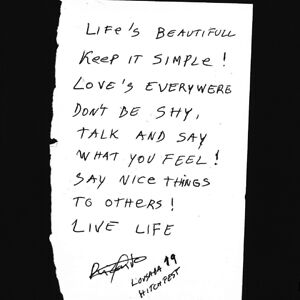 LIFE'S BEAUTIFULL
KEEP IT SIMPLE!
LOVE'S EVERYWERE
DON'T BE SHY,
TALK AND SAY
WHAT YOU FEEL!
SAY NICE THINGS
TO OTHERS!
LIVE LIFE
19
HITCHFEST